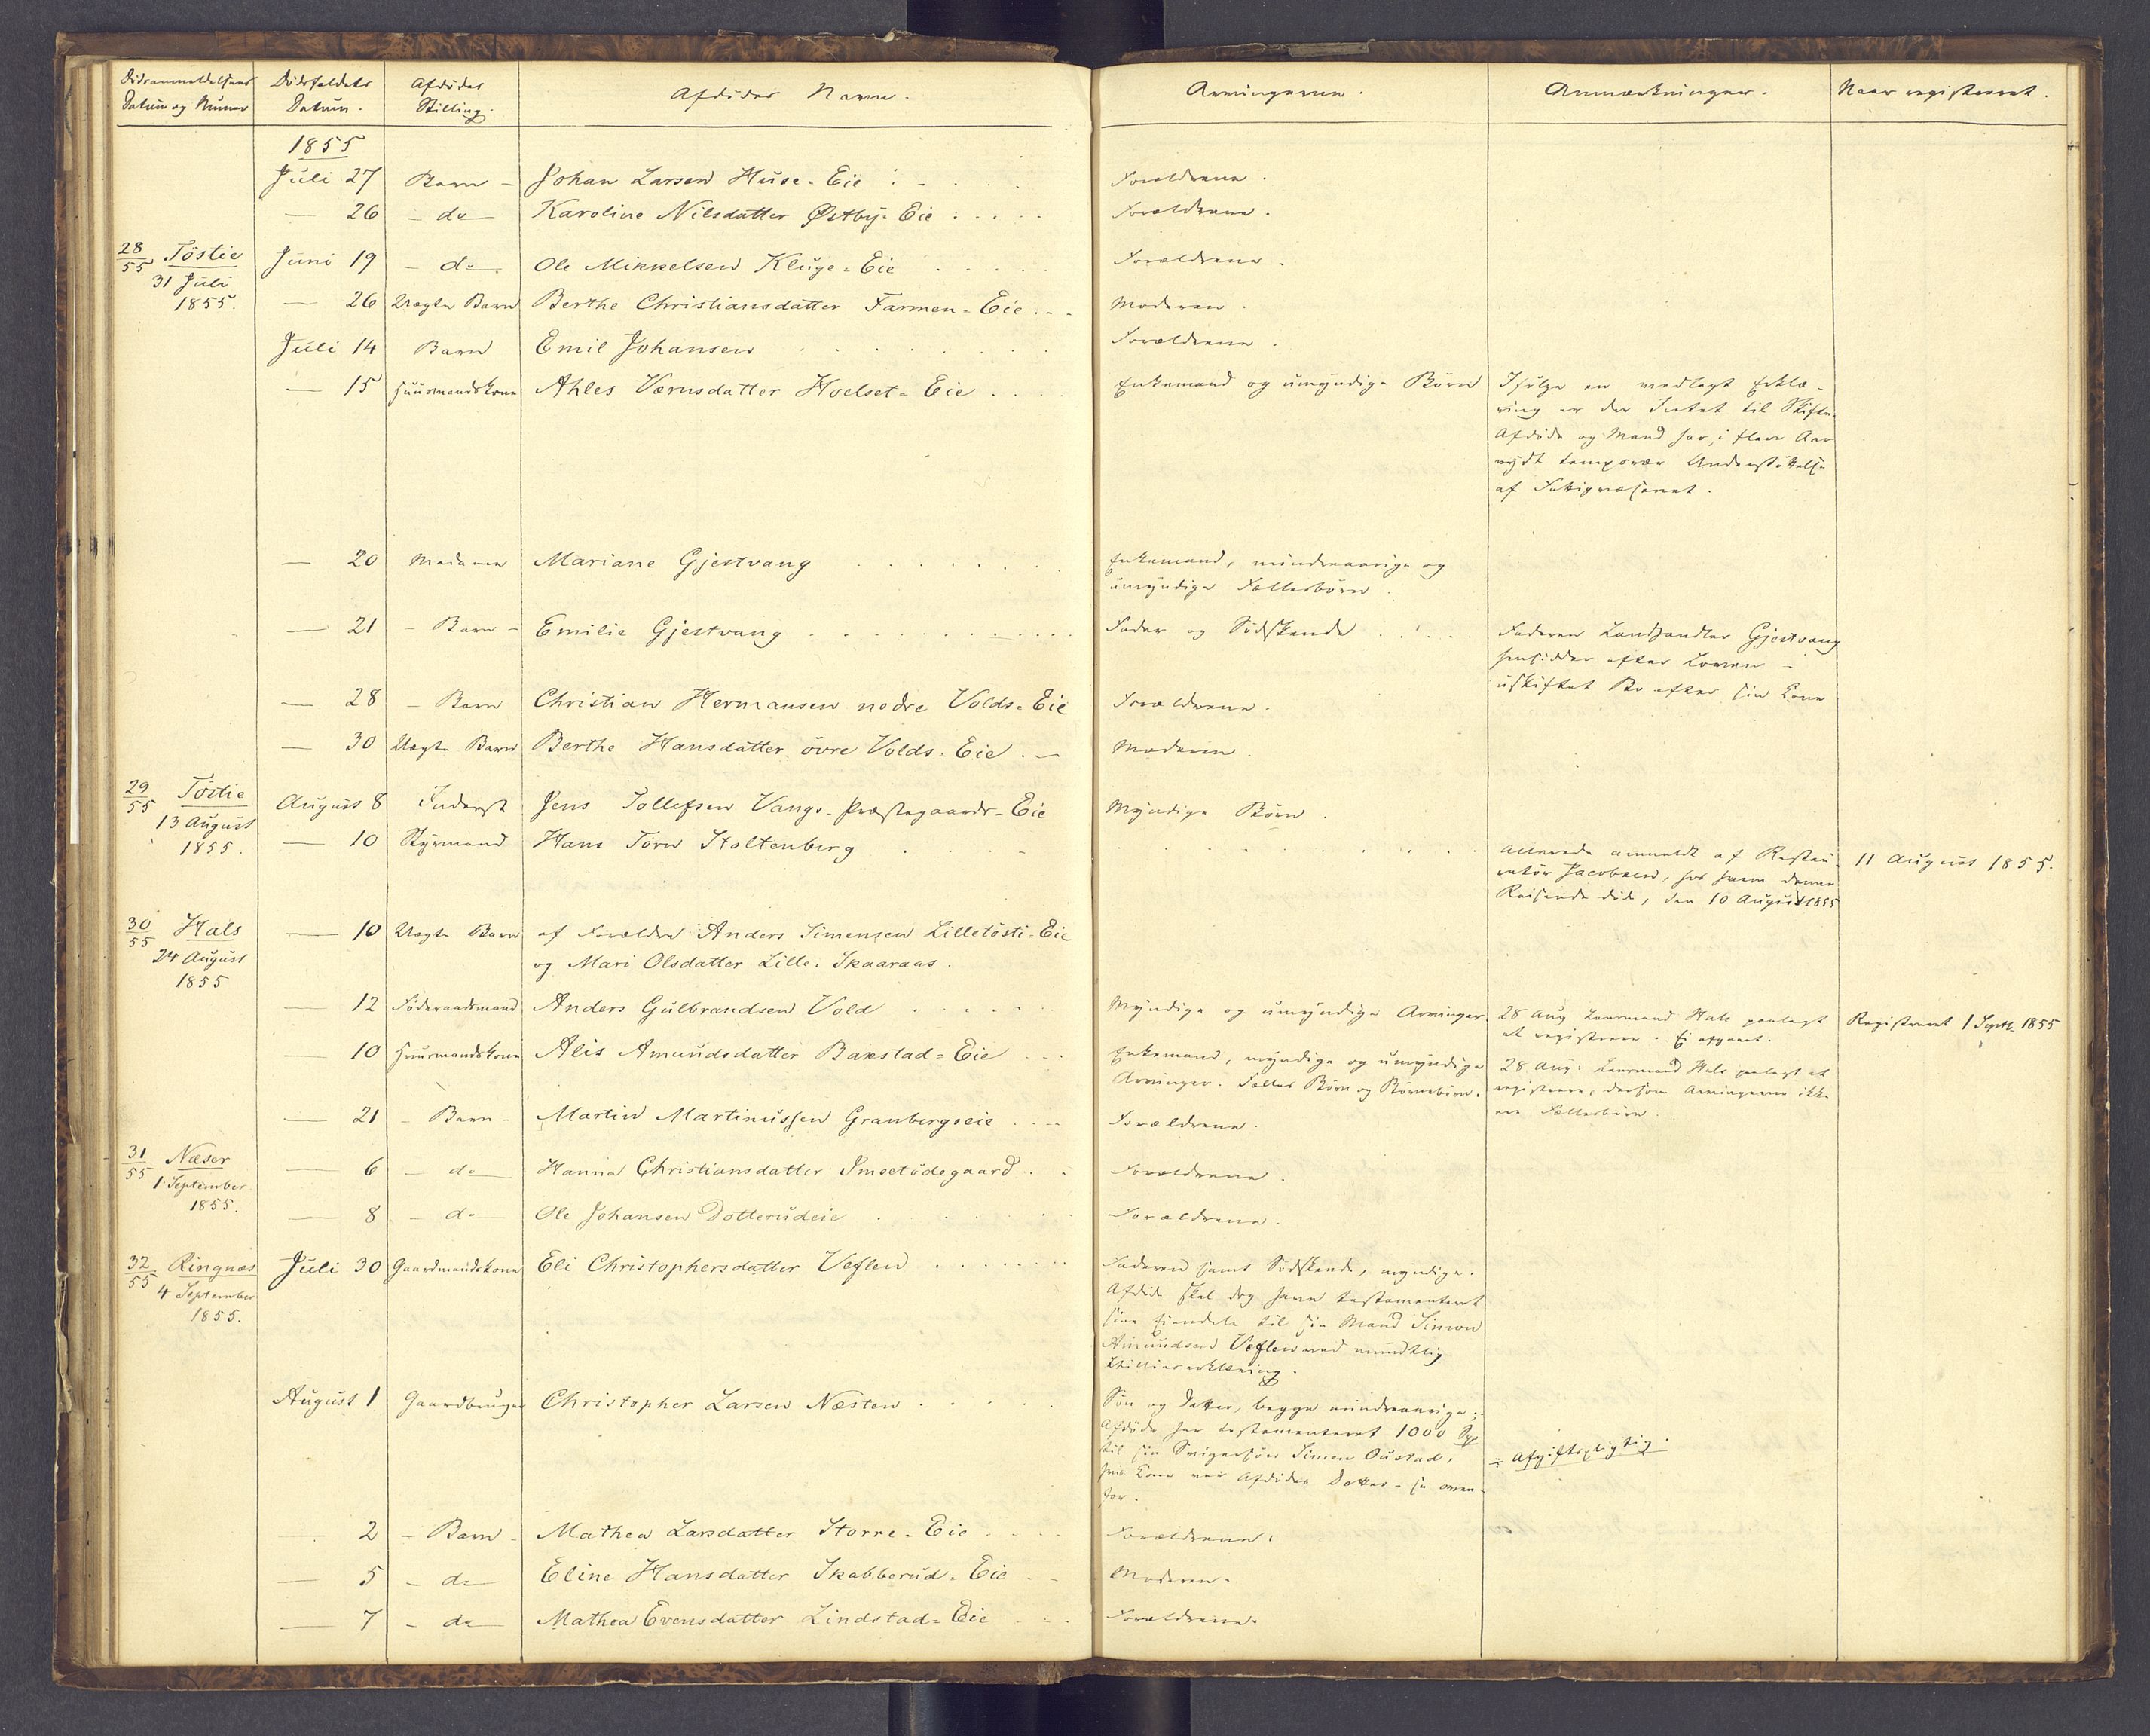 Dödsanmeldelsens Datum og Numer | Dödsfaldets Datum. | Afdödes Stilling. | Afdödes Navn. | Arvingerne. | Anmærkninger. | Naar registreret.
1855
Juli 27 | Barn - | Johan Larsen Huse-Eie | Forældrene.
— 26 | - do | Karoline Nilsdatter Østby-Eie | Forældrene.
28/55 Töstie | Juni 19 | - do. | Ole Mikkelsen Kluge-Eie | Forældrene.
31 Juli
1855. | — 26 | Uægte Barn | Berthe Christiansdatter Farmen-Eie | Moderen.
Juli 14 | Barn | Emil Johansen | Forældrene.
— 15 | Huusmandskone | Ahles Værnsdatter Hoelset-Eie | Enkemand og umyndige Börn | Ifölge en medlagt Erklæ-
ring er der Intet til Skifte.
Afdöde og Mand har i flere Aar
nydt temporær Understöttelse
af Fattigvæsenet.
— 20 | Madame | Mariane Gjestvang | Enkemand, mindreaarige og
umyndige Fællesbörn.
— 21 | - Barn - | Emilie Gjestvang | Fader og Södskende | Faderen Landhandler Gjestvang
hensidder efter Loven i
uskiftet Bo efter sin Kone
— 28 | - Barn | Christian Hermansen nedre Volds-Eie | Forældrene.
— 30 | Uægte Barn | Berthe Hansdatter övre Volds-Eie | Moderen
29/55 Töstie | August 8 | Inderst | Jens Tollefsen Vangs-Præstegaards-Eie | Myndige Börn.
13 August
1855. | — 10 | Styrmand | Hans Törn Stoltenberg | Allerede anmeldt af Restau- | 11 August 1855.
ratör Jacobsen, hos hvem denne
Reisende döde, den 10 August 1855
30/55 Hals | — 10 | Uægte Barn | af Forældre Anders Simensen Lilletösti-Eie
24 August | og Mari Olsdatter Lille-Skaaraas.
1855
— 12 | Föderaadsmand | Anders Gulbrandsen Vold | Myndige og umyndige Arvinger. | 28 Aug Lensmand Hals paalagt | Registreret 1 Septb. 1855
at registrere.
— 10 | Huusmandskone | Alis Amundsdatter Bakstad-Eie | Enkemand, myndige og umyndige | 28 Aug: Lensmand Hals paalagt at
Arvinger. Fælles Börn og Börnebörn. | registrere, dersom Arvingerne ikke
ere Fællesbörn.
— 21 | - Barn - | Martin Martinussen Granbergseie | Forældrene.
31/55 Næser | — 6 | - do | Hanna Christiansdatter Imsetödegaard | Forældrene.
1 September
1855. | — 8 | - do | Ole Johansen Dotterudeie | Forældrene.
32/55 Ringnæs | Juli 30 | Gaardmandskone | Eli Christophersdatter Veflen | Faderen samt Södskende, myndige.
4 September | Afdöde skal dog have testamenteret
1855. | sine Eiendele til sin Mand Simon
Amundsen Veflen ved mundtlig
Villieserklæring.
August 1 | Gaardbruger | Christopher Larsen Næsten | Sön og Datter, begge mindreaarige;
Afdöde har testamenteret 1000 Spd
til sin Svigersön Simen Oustad, | ÷ Afgiftspligtig.
hvis Kone var Afdödes Datter - se oven-
for.
— 2 | - Barn - | Mathea Larsdatter Storre-Eie | Forældrene.
— 5 | - do | Eline Hansdatter Skabberud-Eie | Moderen.
— 7 | - do | Mathea Evensdatter Lindstad-Eie | Forældrene.